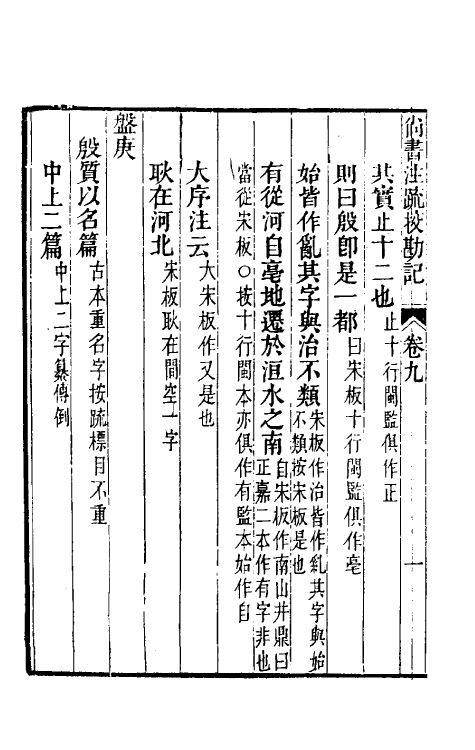 尚書注疏校勘記 卷九 一
其實止十二也 止十行閩監俱作正
則曰殷卽是一都 曰宋板十行閩監俱作亳
始皆作亂其字與治不類 朱板作治皆作亂其字與始
不類按宋板是也
有從河自亳地遷於洹水之南 自宋板作南山井鼎曰
正嘉二本作有字非也
當從宋板○按十行閩本亦俱作有監本始作自
大序注云 大宋板作又是也
耿在河北 宋板耿在間空一字
盤庚
殷質以名篇 古本重名字按疏標目不重
中上二篇 中上二字纂傳倒